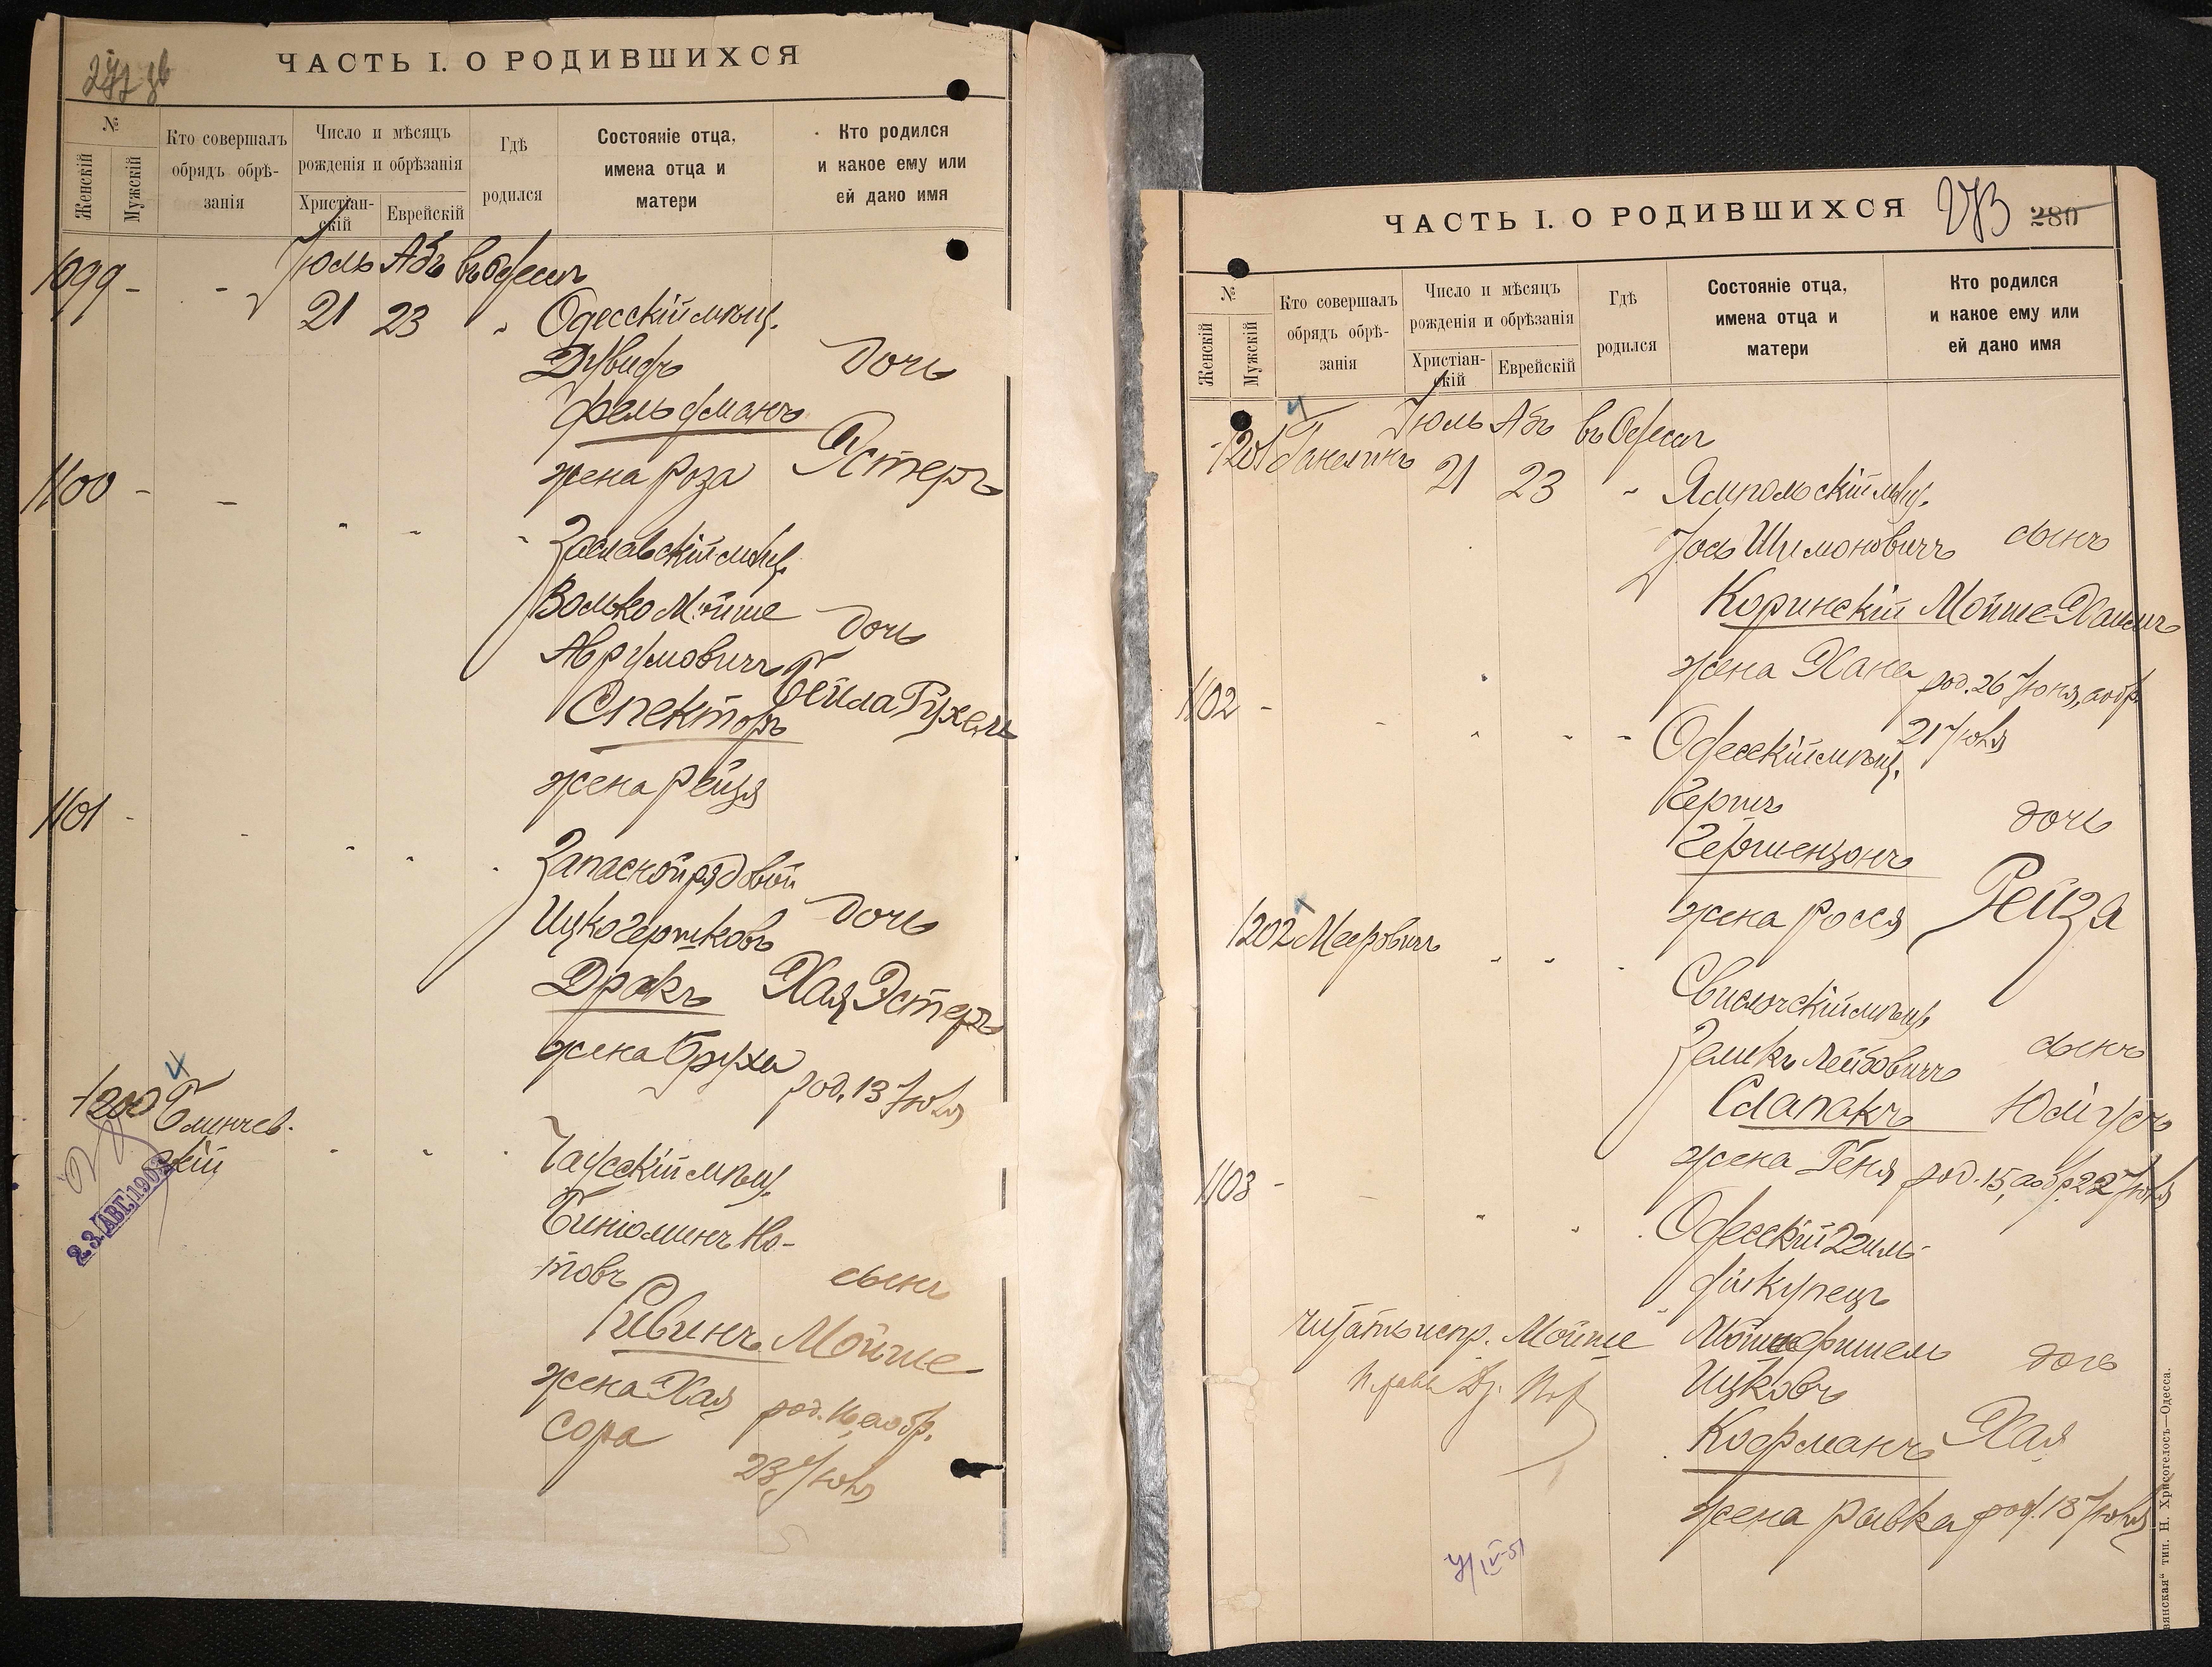 272 об
ЧАСТЬ I. О РОДИВШИХСЯ
№
Женскій
Мужскій
Кто совершалъ
обрядъ обрѣ-
занія
Число и мѣсяцъ
рожденія и обрѣзанія
Христіан-
скій
Еврейскій
Гдѣ
родился
Состояніе отца,
имена отца и
матери
Кто родился
и какое ему или
ей дано имя
Іюль Абъ въ Одессѣ
1099 - -
21 23 " Одесскій мѣщ.
Дувидъ дочь
Фельдманъ
жена Роза Эстеръ
1100 - -
" " " Заславскій мѣщ.
Волько Мойше
Аврумовичъ дочь
Спекторъ Бейла Рухель
жена Рейзя
1101 - -
" " " Запасной рядовой
Ицко Гершковъ дочь
Дракъ Хая Эстеръ
жена Бруха род. 13 Іюля
1200 Блинчев-
скій
23 АВГ. 1903
" " " Чаусскій мѣщ.
Биніоминъ Но-
товъ сынъ
Ривинъ Мойше
жена Хая род. 16, а обр.
Сора
23 Іюля
ЧАСТЬ I. О РОДИВШИХСЯ
273 280
№
Женскій
Мужскій
Кто совершалъ
обрядъ обрѣ-
занія
Число и мѣсяцъ
рожденія и обрѣзанія
Христіан-
скій
Еврейскій
Гдѣ
родился
Состояніе отца,
имена отца и
матери
Кто родился
и какое ему или
ей дано имя
Іюль Абъ въ Одессѣ
1201 Ганелинъ 21 23 " Ямпольскій мѣщ.
Іось Шимоновичъ сынъ
Коринскій Мойше-Хаимъ
жена Хана род. 26 Іюня, а обр.
21 Іюля
1102 - -
" " " Одесскій мѣщ.
Гершъ дочь
Гершензонъ
жена Росся Рейзя
1202 Мееровичъ " " "
Свислочскій мѣщ.
Зеликъ Лейбовичъ сынъ
Слапакъ Юліусъ
жена Геня род. 15, а обр. 22 Іюля
1103 - -
" " " Одесскій 2 гиль-
діи купецъ
читать испр. Мойше
Мойше Фишель дочь
Ицковъ
Кофманъ Хая
жена Ривка род. 13 Іюля
янская" тип. Н. Хрисогелосъ—Одесса.